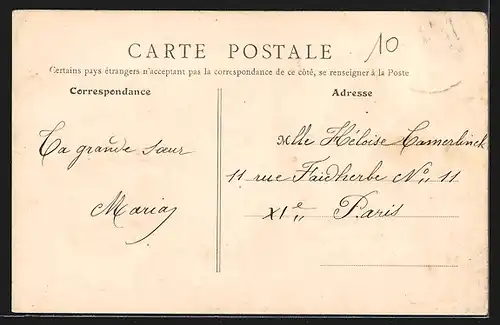 CARTE POSTALE
10
Certains pays étrangers n'acceptant pas la correspondance de ce côté, se renseigner à la Poste
Correspondance
Adresse
Ta grande sœur
Maria
Mlle Héloise Camerlinck
11 rue Faidherbe No 11
XIe Paris